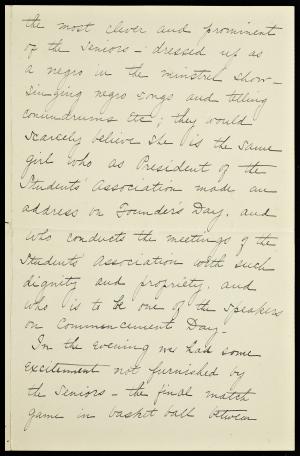 the most clever and prominent
of the Seniors - dressed up as
a negro in the minstrel show -
singing negro songs and telling
conundrums etc; they would
scarcely believe she is the same
girl who as President of the
Students' Association made an
address on Founder's Day, and
who conducts the meetings of the
Students' Association with such
dignity and propriety, and
who is to be one of the speakers
on Commencement Day -
In the evening we had some
excitement not furnished by
the Seniors - the final match
game in basket ball between